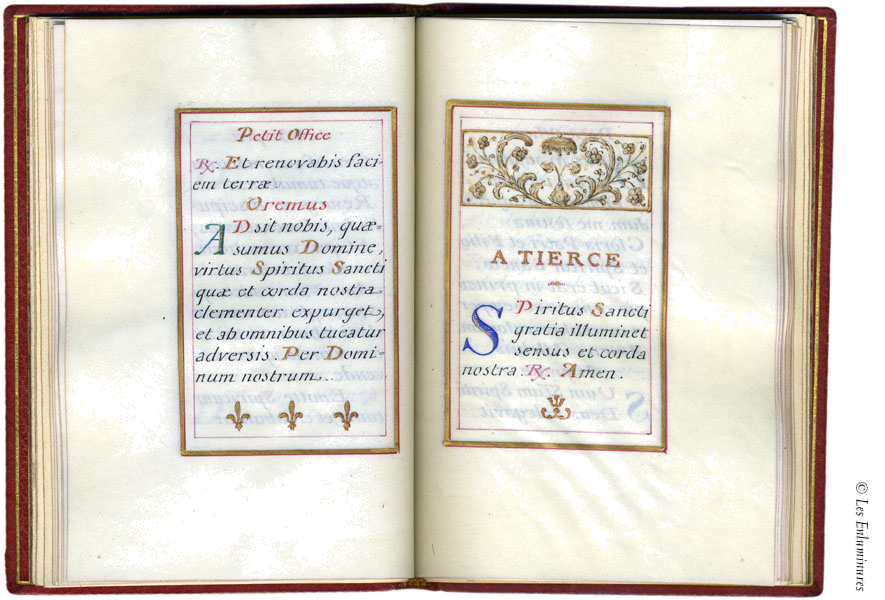 Petit Office
℟. Et renovabis faci-
em terræ
Oremus
ADsit nobis, quæ-
sumus Domine,
virtus Spiritus Sancti
quæ et corda nostra
clementer expurget,
et ab omnibus tueatur
adversis. Per Domi-
num nostrum.
A TIERCE
SPiritus Sancti
gratia illuminet
sensus et corda
nostra. ℟. Amen.
© Les Enluminures